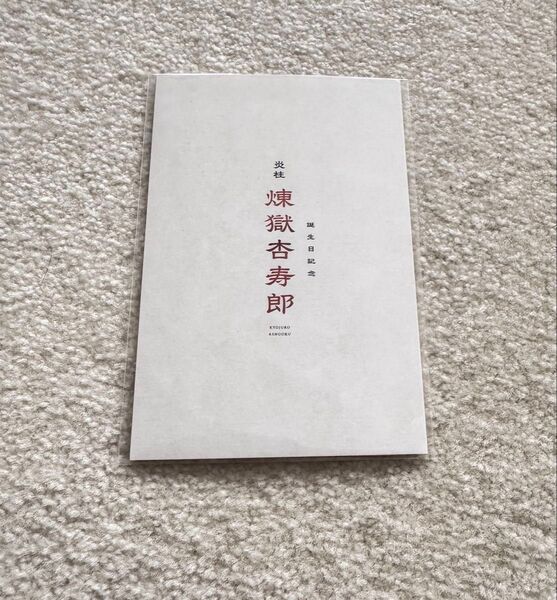 誕生日記念
炎柱
煉獄杏寿郎
KYOJURO
RENGOKU